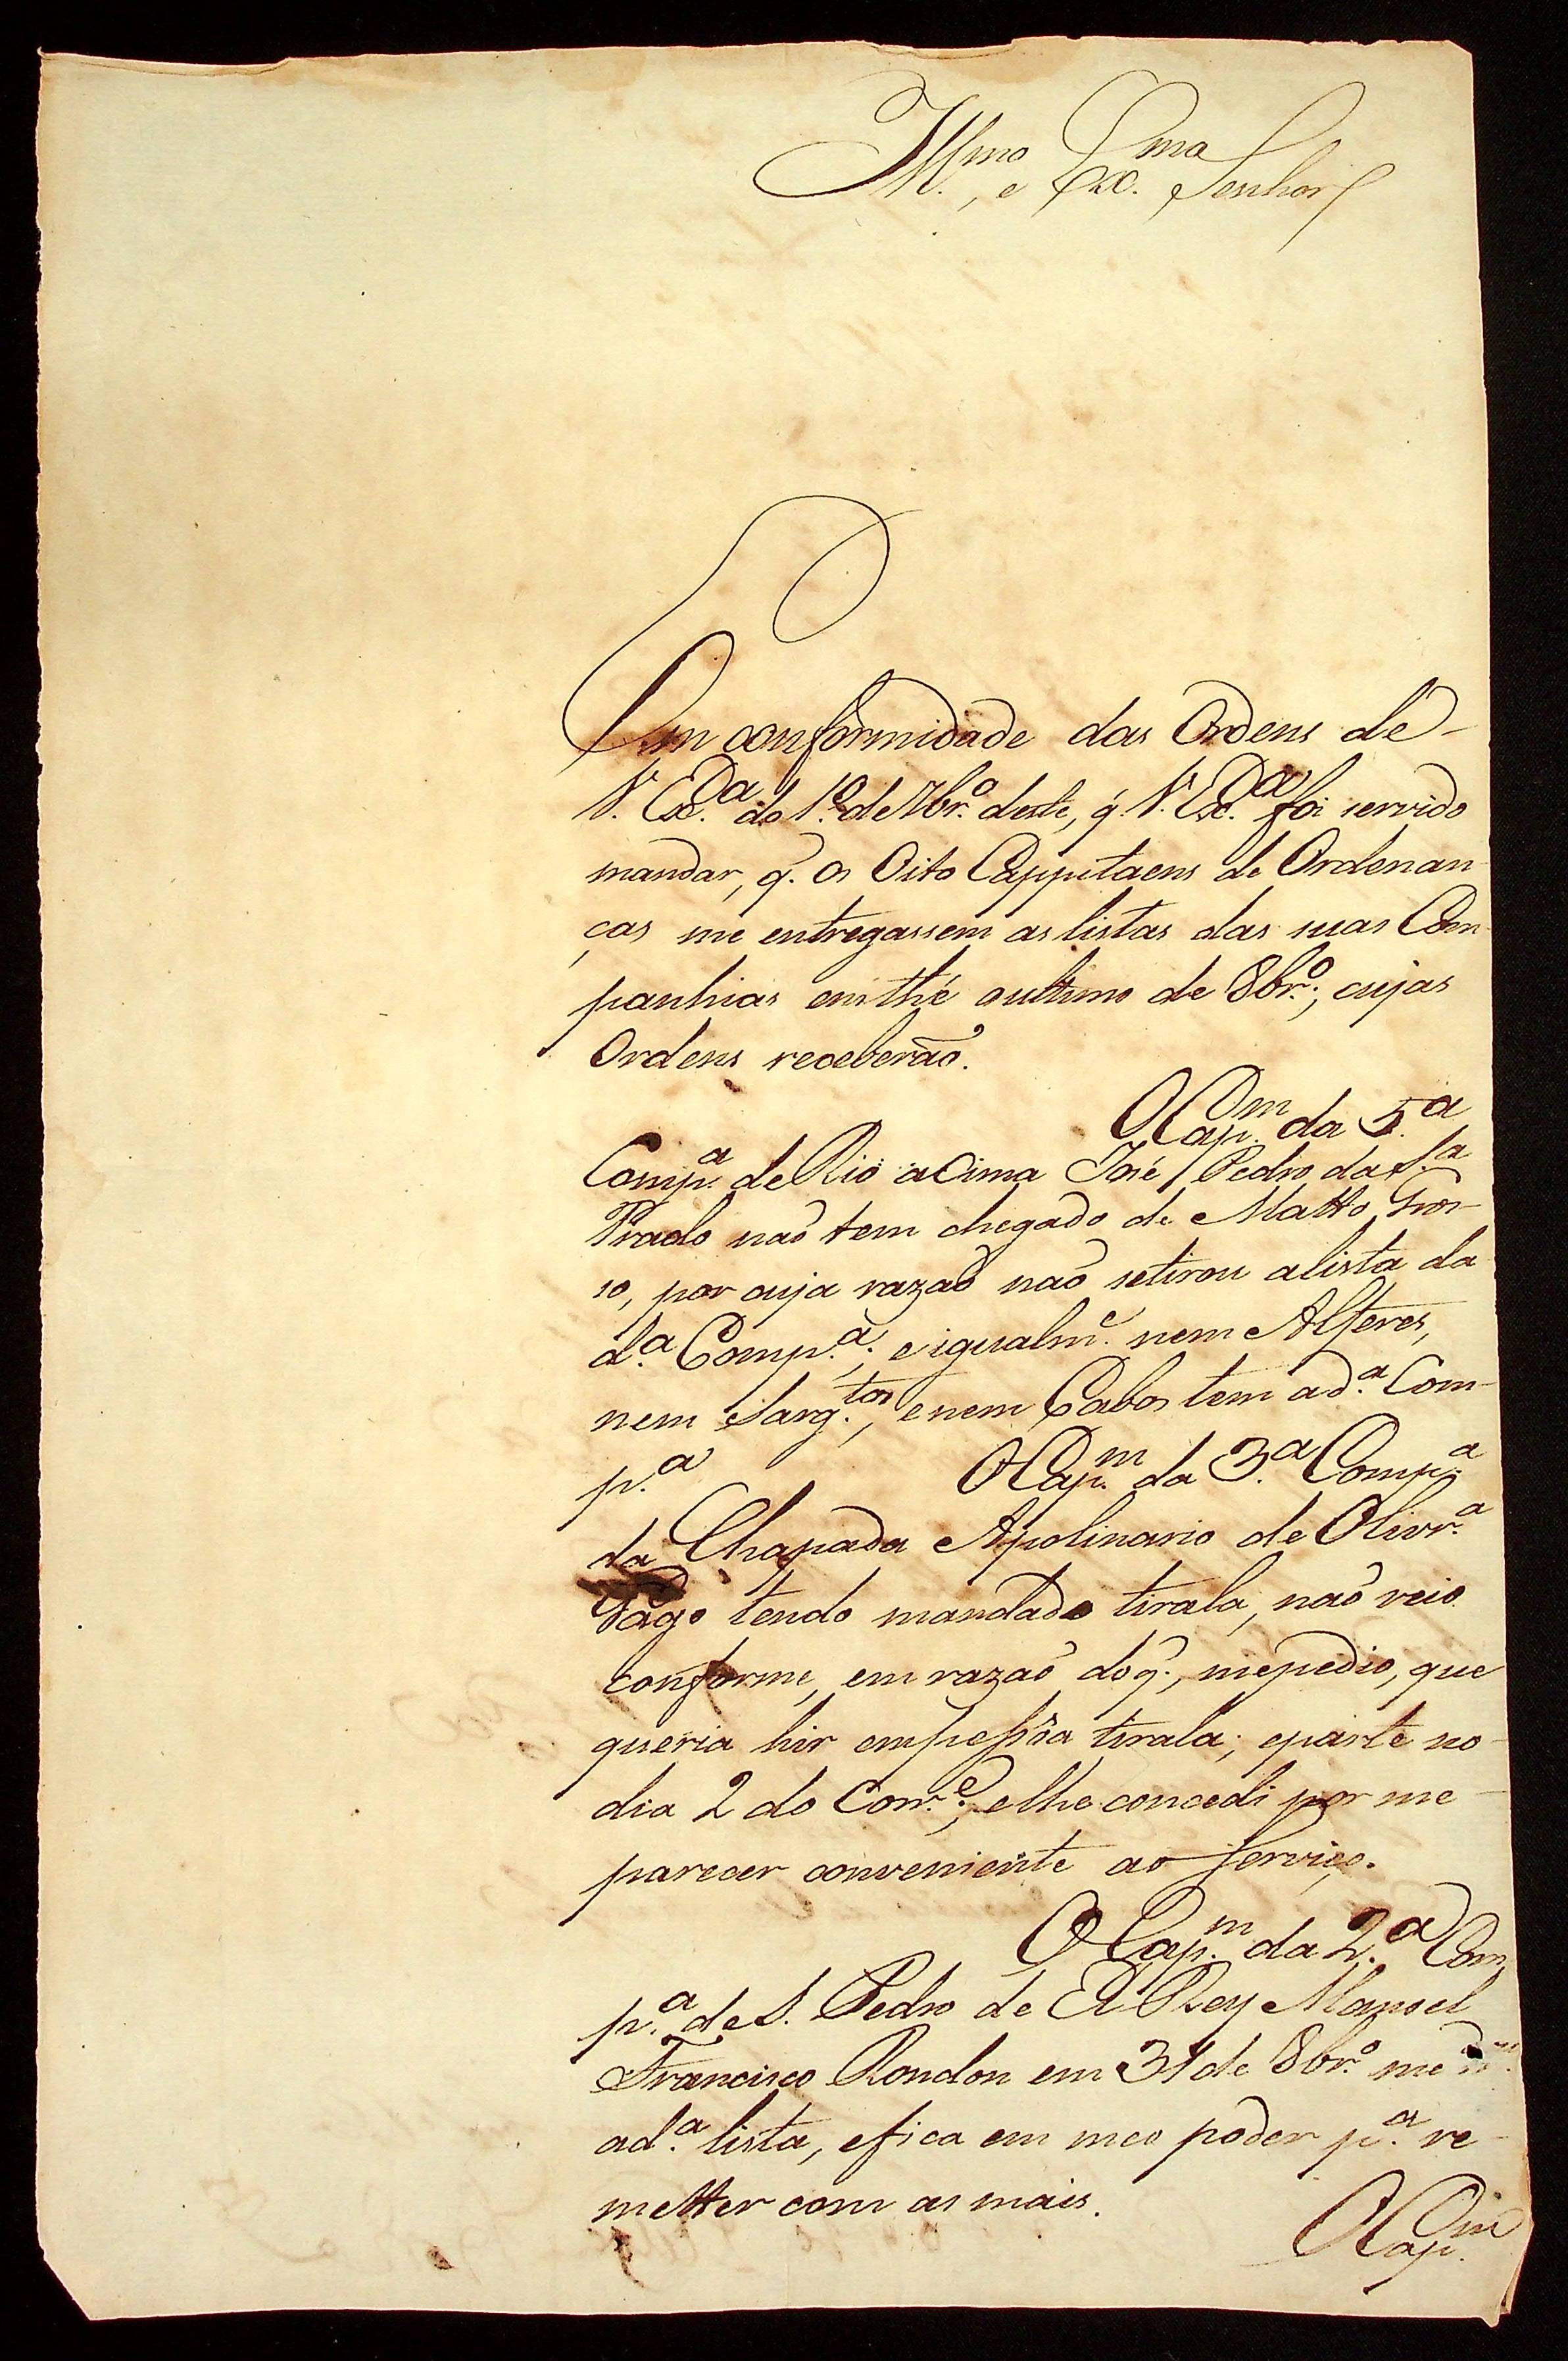 Ill.mo, e Ex.mo Senhor
Em conformidade das Ordens de
V. Ex.a do 1.º de 7br.º deste, q̃ V. Ex.a foi servido
mandar, q. os Oito Cappitaens de Ordenan
ças me entregassem as listas das suas Com
panhias emthé oultimo de 8br.º; cujas
Ordens receberão.
O Cap.m da 5.a
Comp.a de Rio acima José Pedro da S.a
Prado não tem chegado de Matto Gros-
so, por cuja razaõ naõ setirou alista da
d.a Comp.a; eigualm.e nem Alferes,
nem Sarg.tos, enem Cabos tem ad.a Com-
p.a
O Cap.m da 3.a Comp.a
da Chapada Apolinario de Olivr.a
tendo mandado tirala, naõ veio
conforme, em razaõ doq̃., mepedio, que
queria hir empessoa tirala; eparte no
dia 2 do Corr.e; elhe concedi por me
parecer conveniente ao Serviço.
O Cap.m da 2.a Com
p.a de S. Pedro de El Rey Manoel
Francisco Rondon em 31 de 8br.º me
ad.a lista, efica em meo poder p.a re-
metter com as mais.
O Cap.m